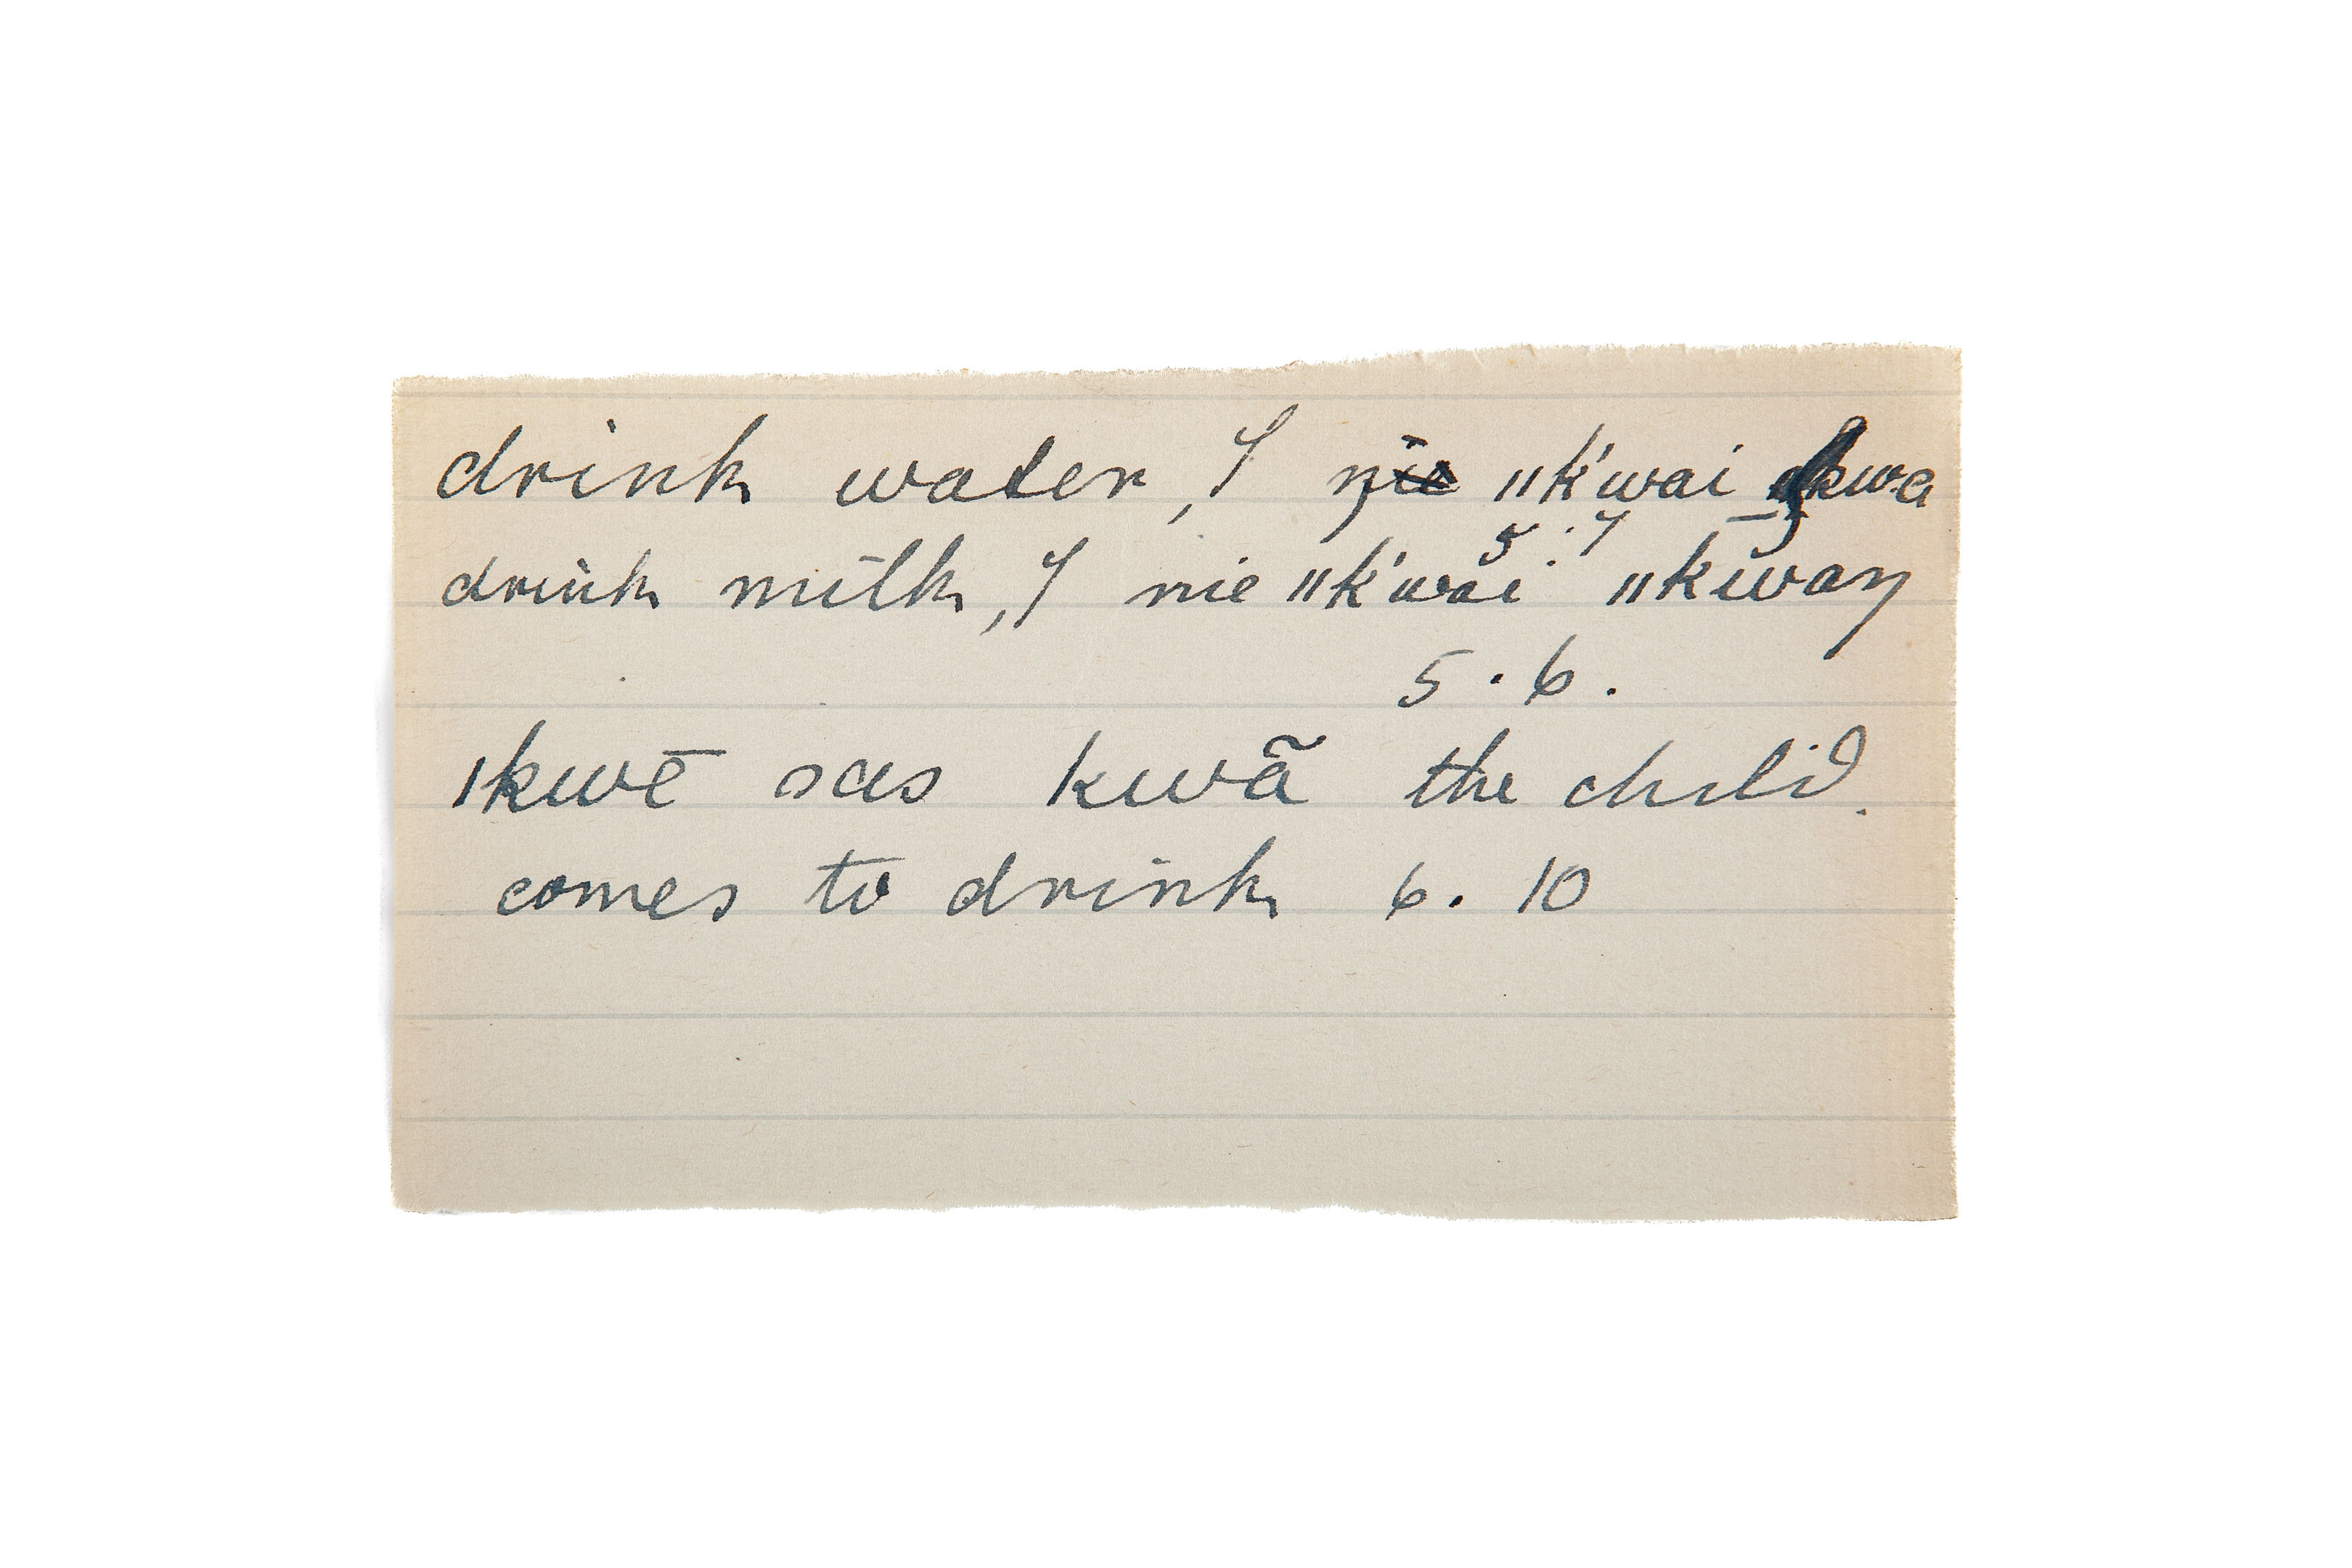 drink water, I ǁk'wai kwa
5 . 7
drink milk, I nie ǁk'wai ǁkwaŋ
5 . 6 .
ǀkwē sas kwã the child
comes to drink 6. 10